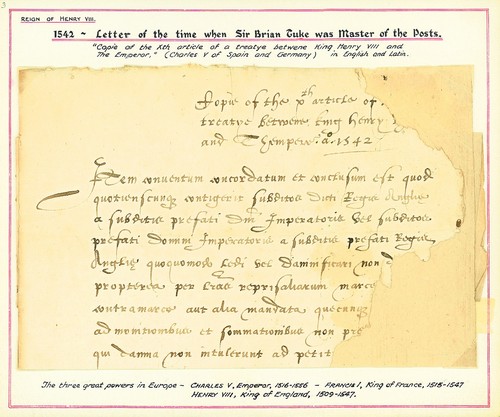 3
REIGN OF HENRY VIII.
1542 ~ Letter of the time when Sir Brian Tuke was Master of the Posts.
"Copie of the Xth article of a treatye betwene King Henry VIII and
The Emperor." (Charles V of Spain and Germany) in English and Latin.
Copie of the xth article of
treatye betwene king Henry
and Themperor ao. 1542
Item conventum concordatum et conclusum est quod
quotienscunq contigerit subditos dicti Regis Anglie
a subditis prefati Dni Imperatoris vel subditos
prefati domini Imperatoris a subditis prefati Regis
Anglie quoquomodo ledi vel damnificari non
propterea per lras reprisaliarum marce
contramarce aut alia mandata quecunq
admonitionibus et sommationibus non pre
qui danna non intulerunt ad petit
The three great powers in Europe - CHARLES V, Emperor, 1516-1556 - FRANCIS I, King of France, 1515-1547
HENRY VIII, King of England, 1509-1547.